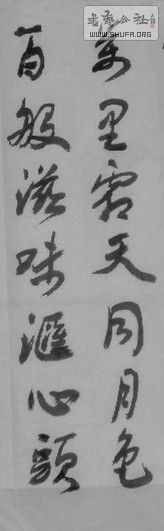 書藝公社
WWW.SHUFA.ORG
万里霜天同月色
百般滋味滙心頭